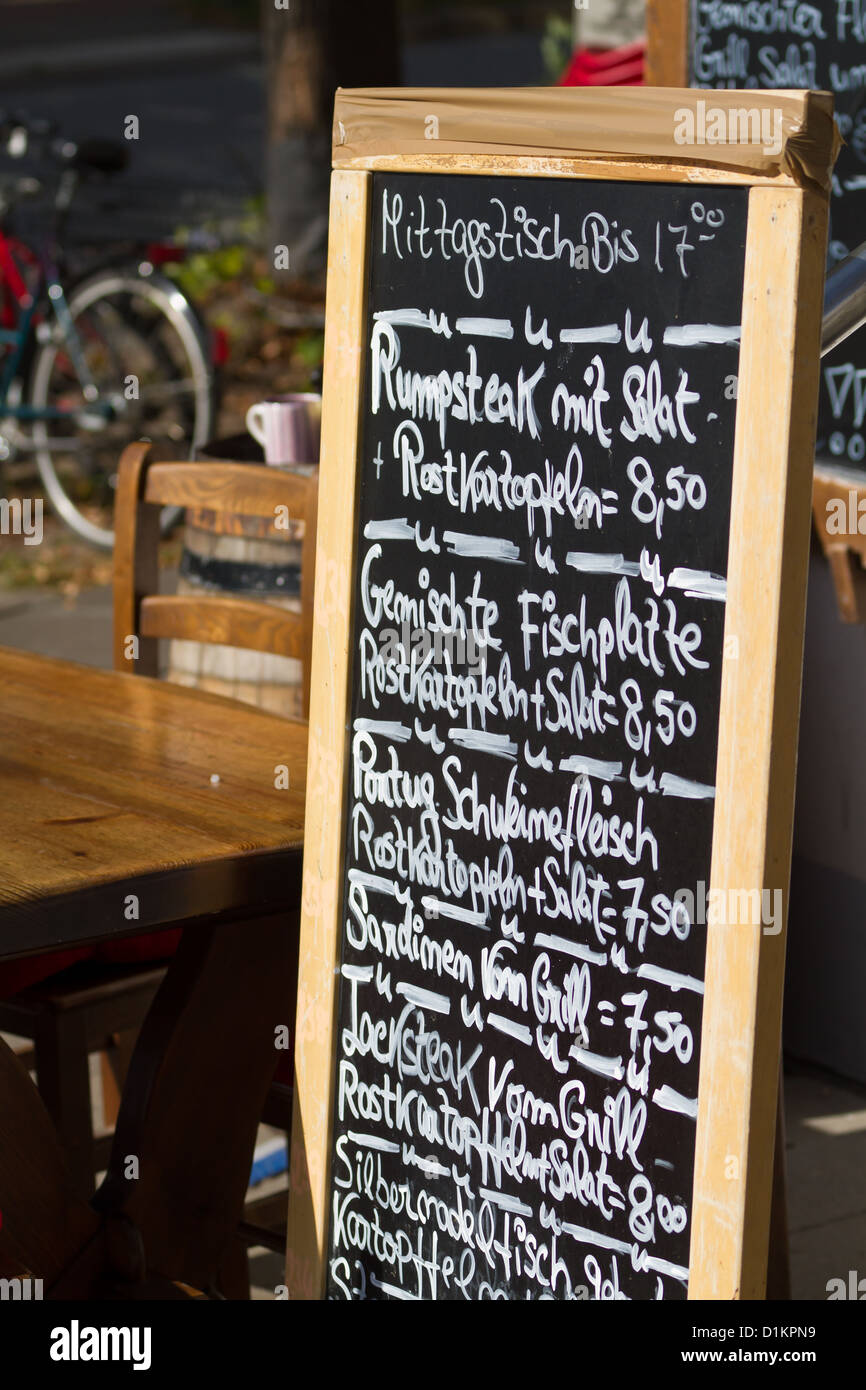 Gemischter
Grill Salat
Mittagstisch Bis 17⁰⁰
Rumpsteak mit Salat
+ Rostkartopfeln = 8,50
Gemischte Fischplatte
Rostkartopfeln + Salat = 8,50
Portug. Schweinefleisch
Rostkartopfeln + Salat = 7,50
Sardinen Vom Grill = 7,50
Jocksteak Vom Grill
Rostkartopfeln + Salat = 8,00
Silbermodelfisch
Kartopfeln
a
alamy
alamy
Image ID: D1KPN9
www.alamy.com